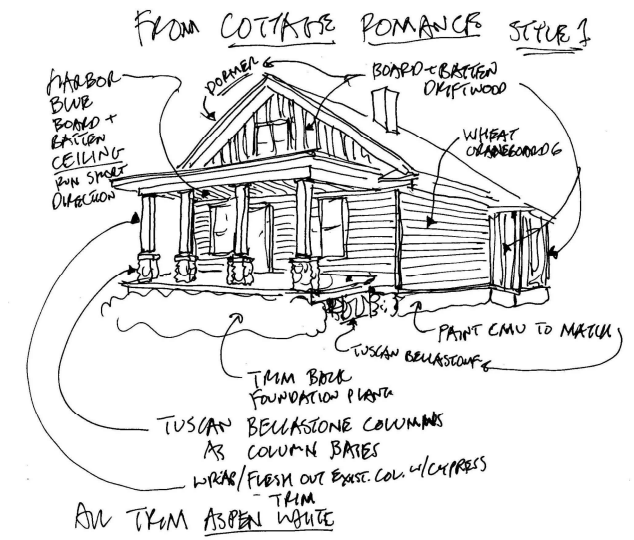 FROM COTTAGE ROMANCE STYLE 1
HARBOR
BLUE
BOARD +
BATTEN
CEILING
RUN SHORT
DIRECTION
DORMER
BOARD + BATTEN
DRIFTWOOD
WHEAT
CRANEBOARD 6
PAINT CMU TO MATCH
TUSCAN BELLASTONE
TRIM BACK
FOUNDATION PLANT
TUSCAN BELLASTONE COLUMNS
AS COLUMN BASES
WRAP/FLESH OUT EXIST. COL. W/CYPRESS
TRIM
ALL TRIM ASPEN WHITE